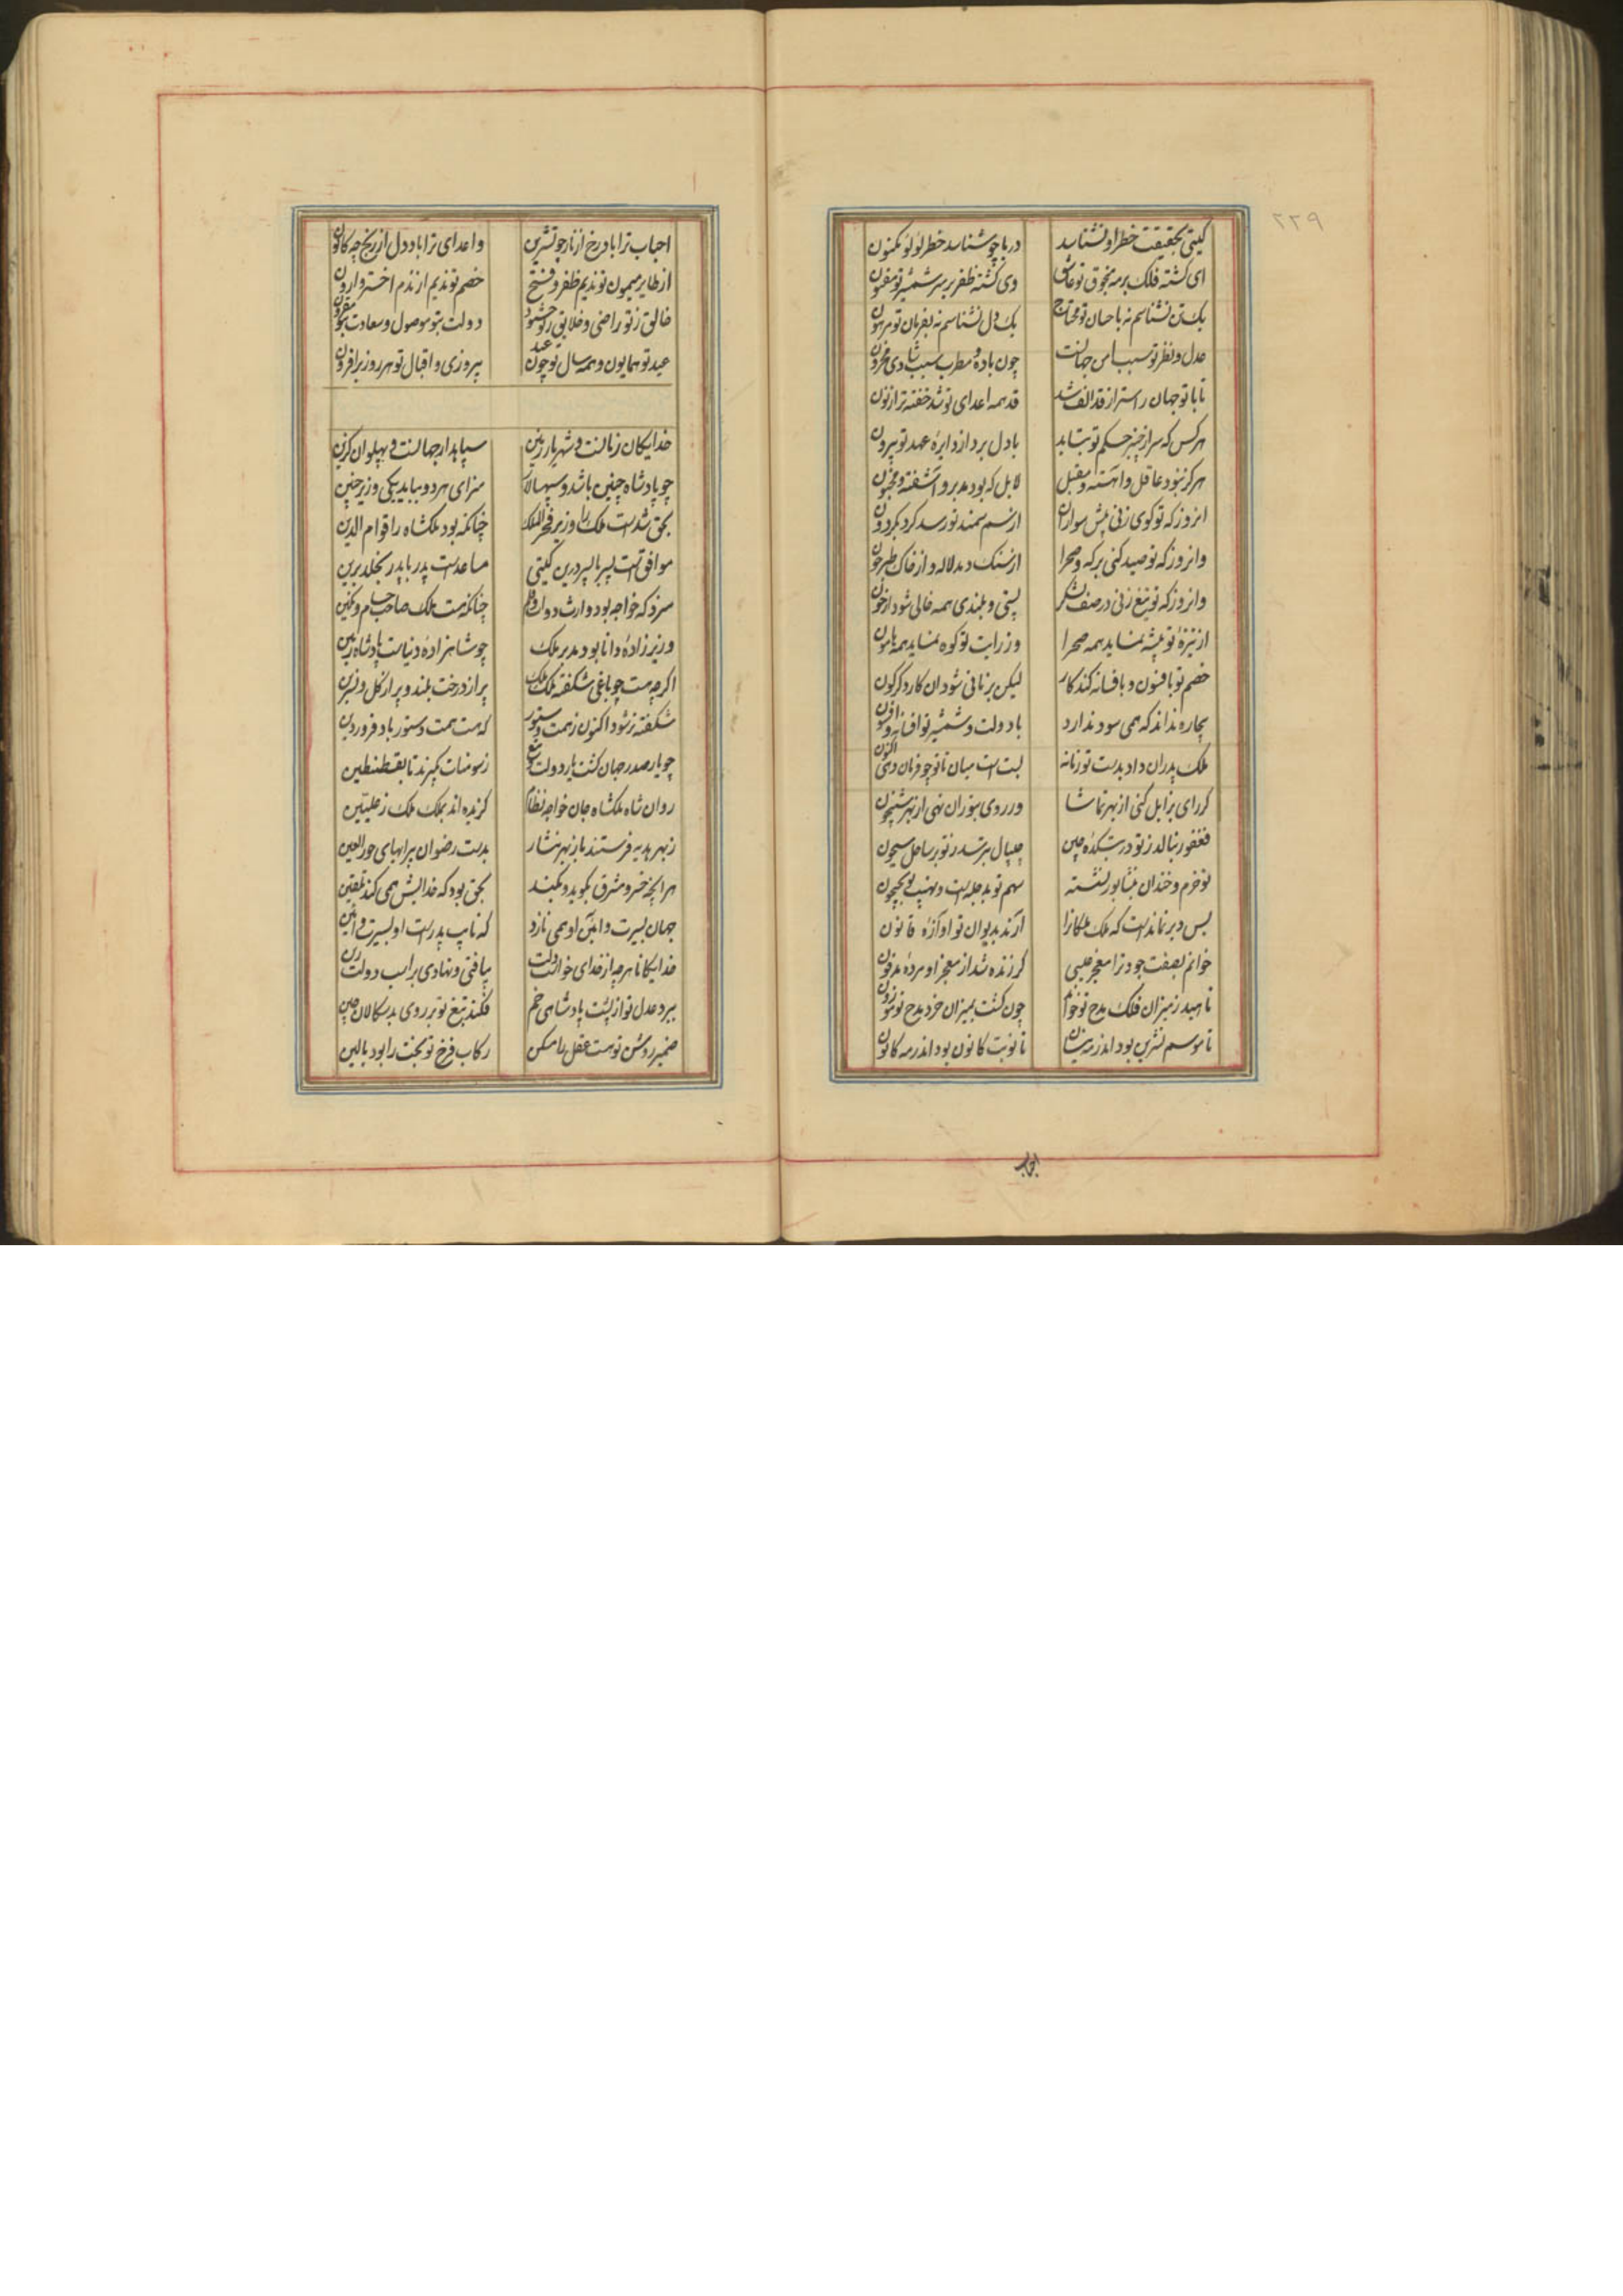 ۲۲۹
گیتی بحقیقت خطر او نشناسد دریا چو شناسد خطر لولو مکنون
ای گشته فلک بر مه منجوق تو عاشق وی گشته ظفر بر سر شمشیر تو مفتون
یک تن نشناسم نه باحسان تو محتاج یک دل نشناسم نه بفرمان تو مرهون
عدل و نظر تو سبب امن جهانست چون باده و مطرب سبب شادی محزون
تا با تو جهان راست‌تر از قد الف شد قد همه اعدای تو شد خفته تر از نون
هر کس که سر از چنبر حکم تو بتابد بادل برد از دایره عهد تو بیرون
هرگز نبود عاقل و آهسته و مقبل لابل که بود مدبر و آشفته و مجنون
انروز که تو گوی زنی پیش سواران از سم سمند تو رسد گرد بگردون
وانروز که تو صید کنی بر که و صحرا از سنگ دمد لاله و از خاک طبرخون
وانروز که تو تیغ زنی در صف لشکر پستی و بلندی همه خالی شود از خون
از نیزه تو بیشه نماید همه صحرا وز رایت تو کوه نماید همه هامون
خصم تو بافسون و بافسانه کند کار لیکن بزمانی شود ان کار دگرگون
بیچاره نداند که همی سود ندارد با دولت و شمشیر تو افسانه و افسون
ملک پدران داد بدست تو زمانه بست است میان تا تو چو فرمان دهی اکنون
گر رای بزابل کنی از بهر تماشا ور روی بتوران نهی از بهر شبیخون
فغفور بنالد ز تو در بتکده چین جیپال بترسد ز تو بر ساحل سیحون
تو خرم و خندان بنشابور نشسته سهم تو بدجله است و نهیب تو بجیحون
بس دیر نماندست که ملک ملکانرا آرند بدیوان تو آوازه قانون
خوانم بصفت جود ترا معجز عیسی گر زنده شد از معجز او مرده مدفون
ناهید ز میزان فلک مدح تو خواند چون گشت بمیزان خرد مدح تو موزون
تا موسم تشرین بود اندر مه نیسان تا نوبت کانون بود اندر مه کانون
احباب
احباب ترا باد رخ از ناز چو تشرین واعدای ترا باد دل از رنج چه کانون
از طایر میمون تو ندیم ظفر و فتح خصم تو ندیم از ندم اختر وارون
خالق ز تو راضی و خلایق ز تو خشنود دولت بتو موصول و سعادت بتو مقرون
عید تو همایون و همه سال تو چون عید پیروزی و اقبال تو هر روز برافزون
خدایگان زمانست و شهریار زمین سپاهدار جهانست و پهلوان گزین
چو پادشاه چنین باشد و سپهسالار سزای هر دو بباید یکی وزیر چنین
بحق شدست ملک را وزیر فخر الملک چنانکه بود ملکشاه را قوام الدین
موافق است پسر با پسر درین گیتی مساعدست پدر با پدر بخلد برین
سزد که خواجه بود وارث دوات و قلم چنانکه هست ملک صاحب حسام و نگین
وزیر زاده دانا بود مدبر ملک چو شاهزاده دنیاست پادشاه زمین
اگرچه هست چو باغی شکفته ملک ملک پر از درخت بلند و پر از گل و نسرین
شکفته‌تر شود اکنون ز همت دستور که هست همت دستور باد فروردین
چو یار صدر جهان گشت یار دولت و تیغ ز سومنات بگیرند تا بقسطنطین
روان شاه ملکشاه و جان خواجه نظام گزیده اند بملک ملک ز علیین
ز بهر هدیه فرستند باز بهر نثار بدست رضوان پیرایهای حورالعین
هر آنچه خسرو مشرق بگوید و بکند بحق بود که خدایش همی کند تلقین
جهان بسیرت و آیین او همی نازد که نایب پدرست او بسیرت و آیین
خدایگانا هر چه از خدای خواست دلت بیافتی و نهادی بر اسب دولت زین
ببرد عدل تو از پشت پادشاهی خم فکند تیغ تو بر روی بدسگالان چین
ضمیر روشن تو هست عقل را مسکن رکاب فرخ تو بخت را بود بالین